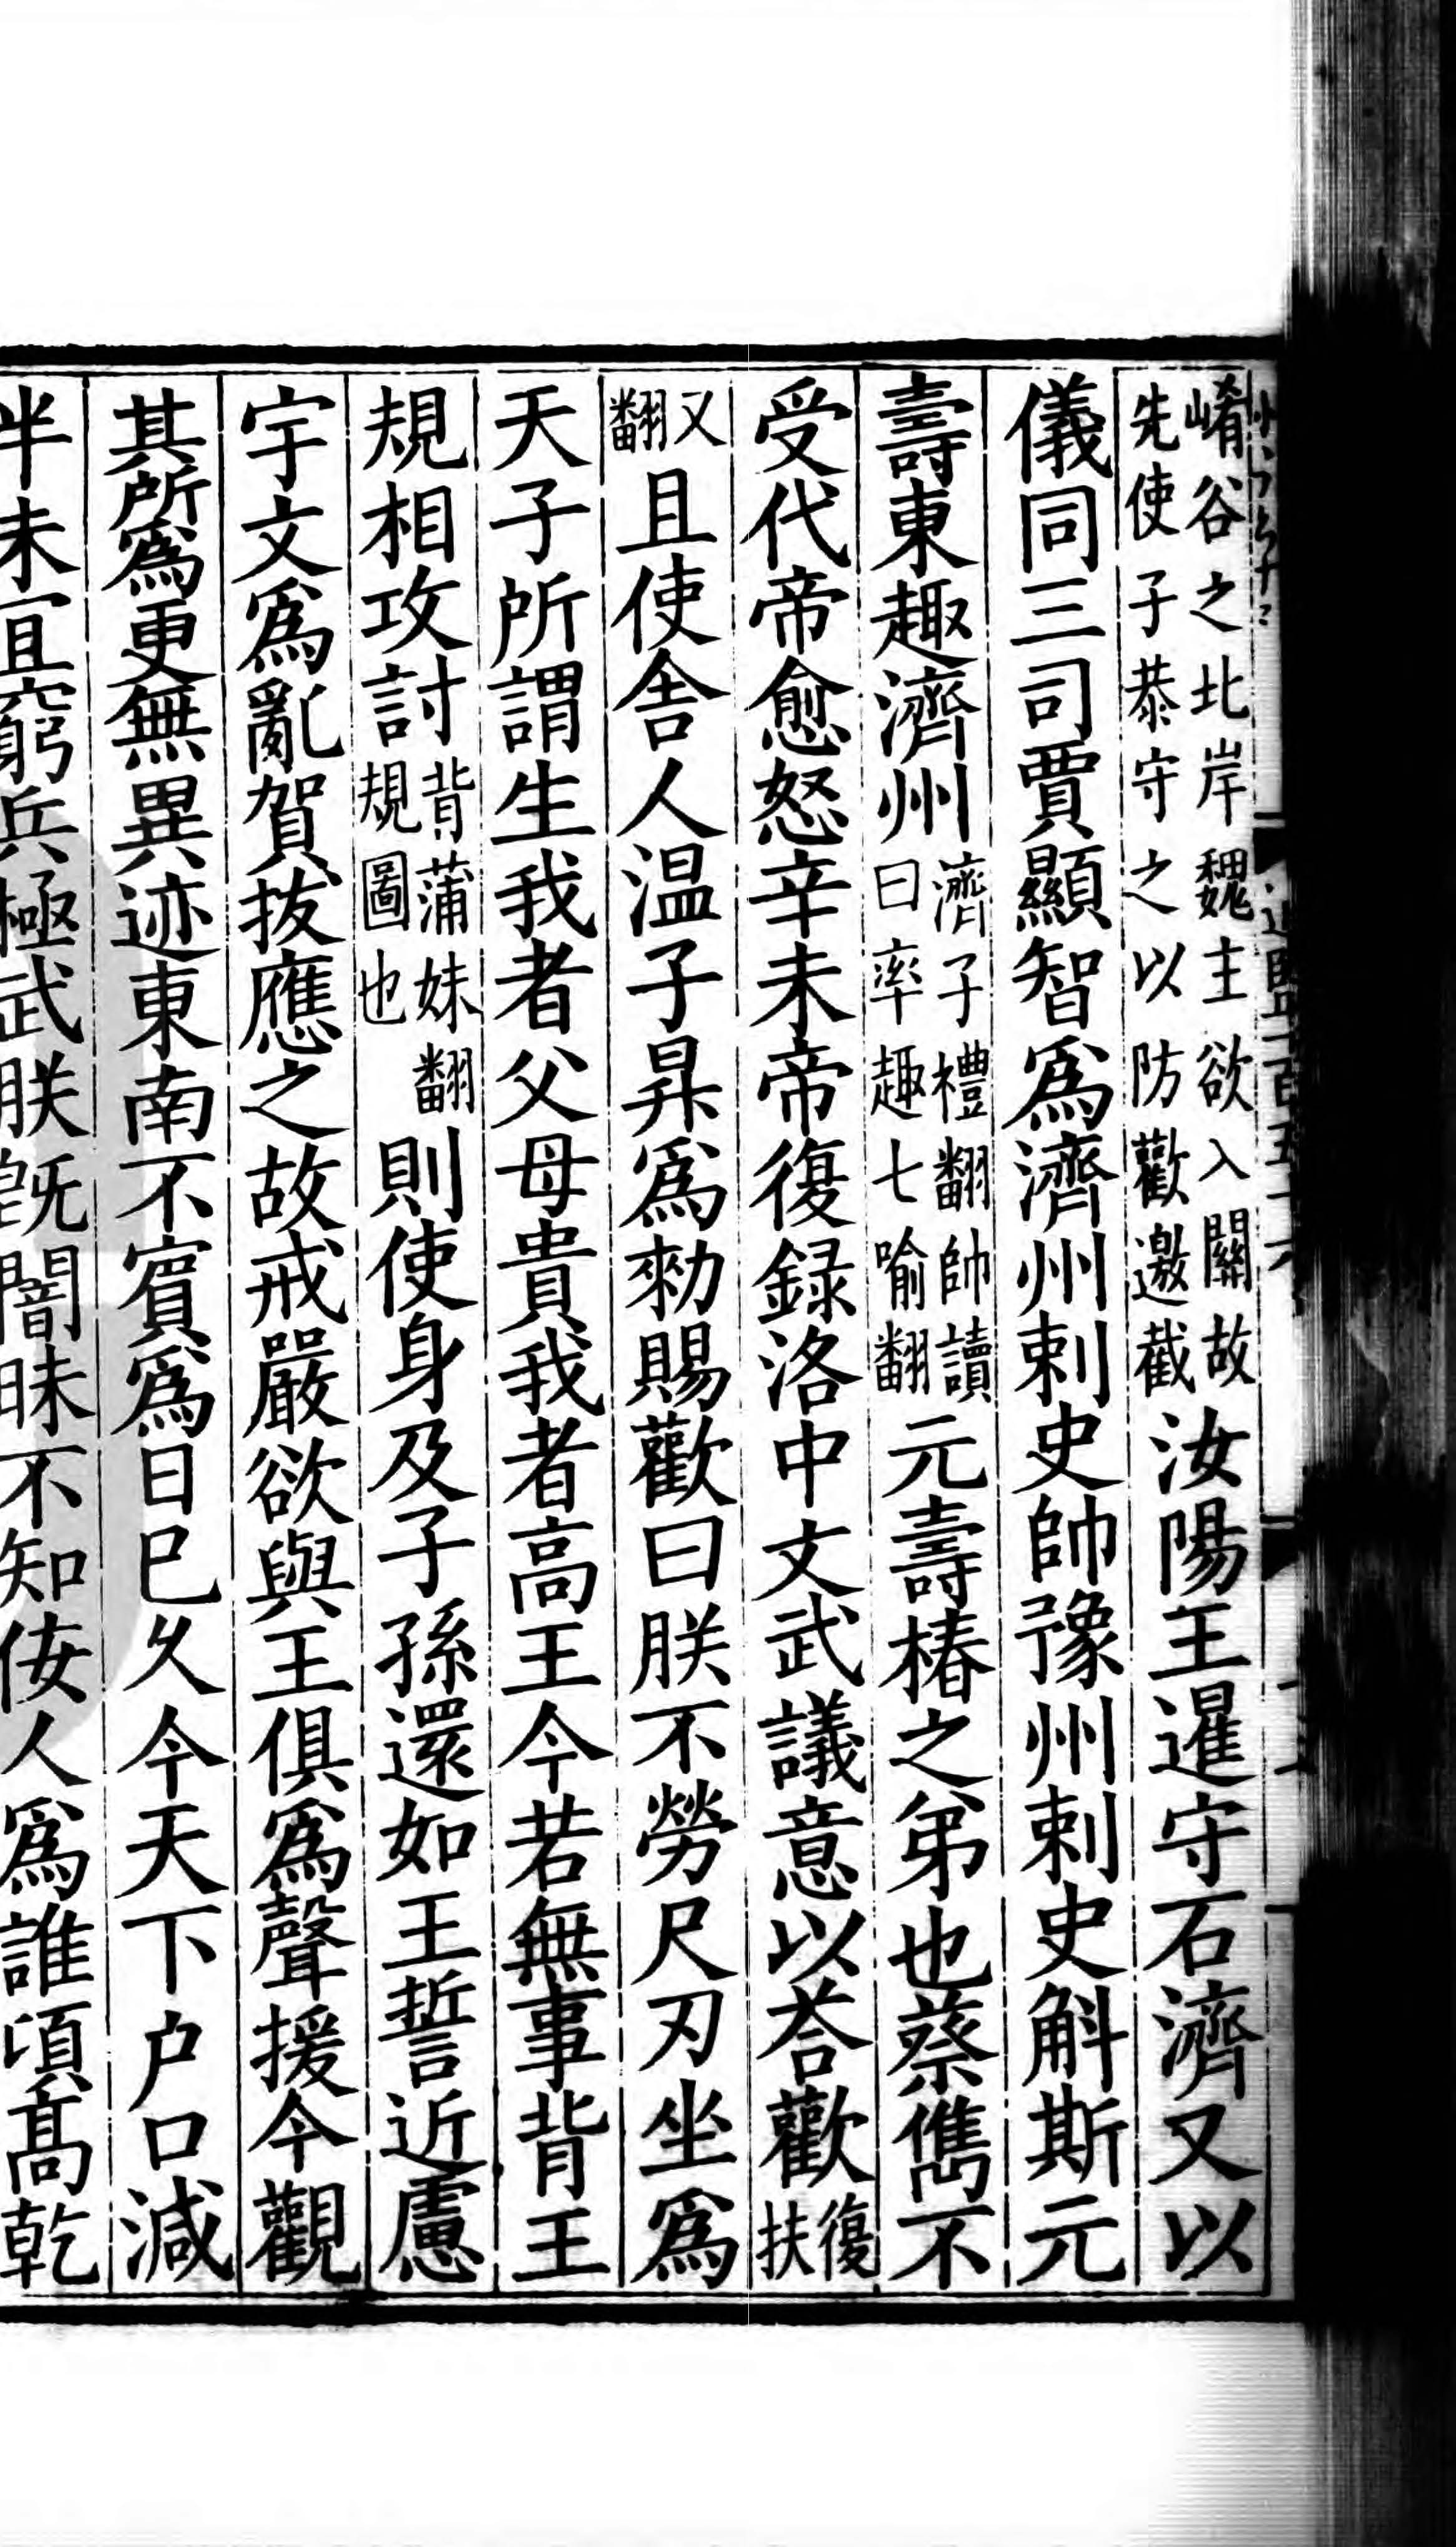 崤谷之北岸魏主欲入關故先使子恭守之以防歡邀截汝陽王暹守石濟又以
儀同三司賈顯智爲濟州刺史帥豫州刺史斛斯元
壽東趣濟州濟子禮翻帥讀曰率趣七喻翻元壽椿之弟也蔡儁不
受代帝愈怒辛未帝復録洛中文武議意以荅歡復扶
又翻且使舍人温子昇爲勑賜歡曰朕不勞尺刃坐爲
天子所謂生我者父母貴我者高王今若無事背王
規相攻討背蒲妹翻規圖也則使身及子孫還如王誓近慮
宇文爲亂賀拔應之故戒嚴欲與王俱爲聲援今觀
其所爲更無異迹東南不賔爲日已久今天下户口減
半未宜窮兵極武朕既闇昧不知佞人爲誰頃髙乾